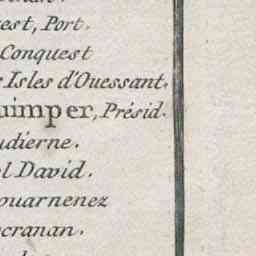 est, Port.
Conquest
Isles d'Ouessant.
uimper, Présid.
udierne.
l David.
ouarnenez
cranan.